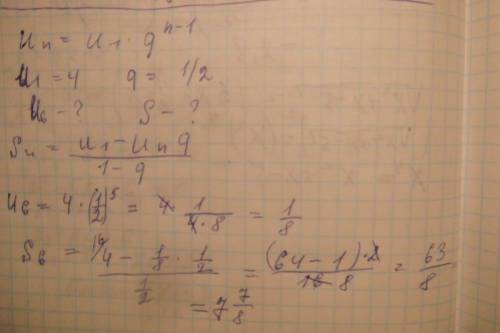 Uₙ = U₁ · q^(n-1)
U₁ = 4   q = 1/2
U₆ - ?   S - ?
Sₙ = (U₁ - Uₙ q) / (1 - q)
U₆ = 4 · (1/2)^5 = 4 · 1/(4·8) = 1/8
S₆ = (16/4 - 1/8 · 1/2) / (1/2) = ((64 - 1) · 2) / (16 8) = 63/8
= 7 7/8